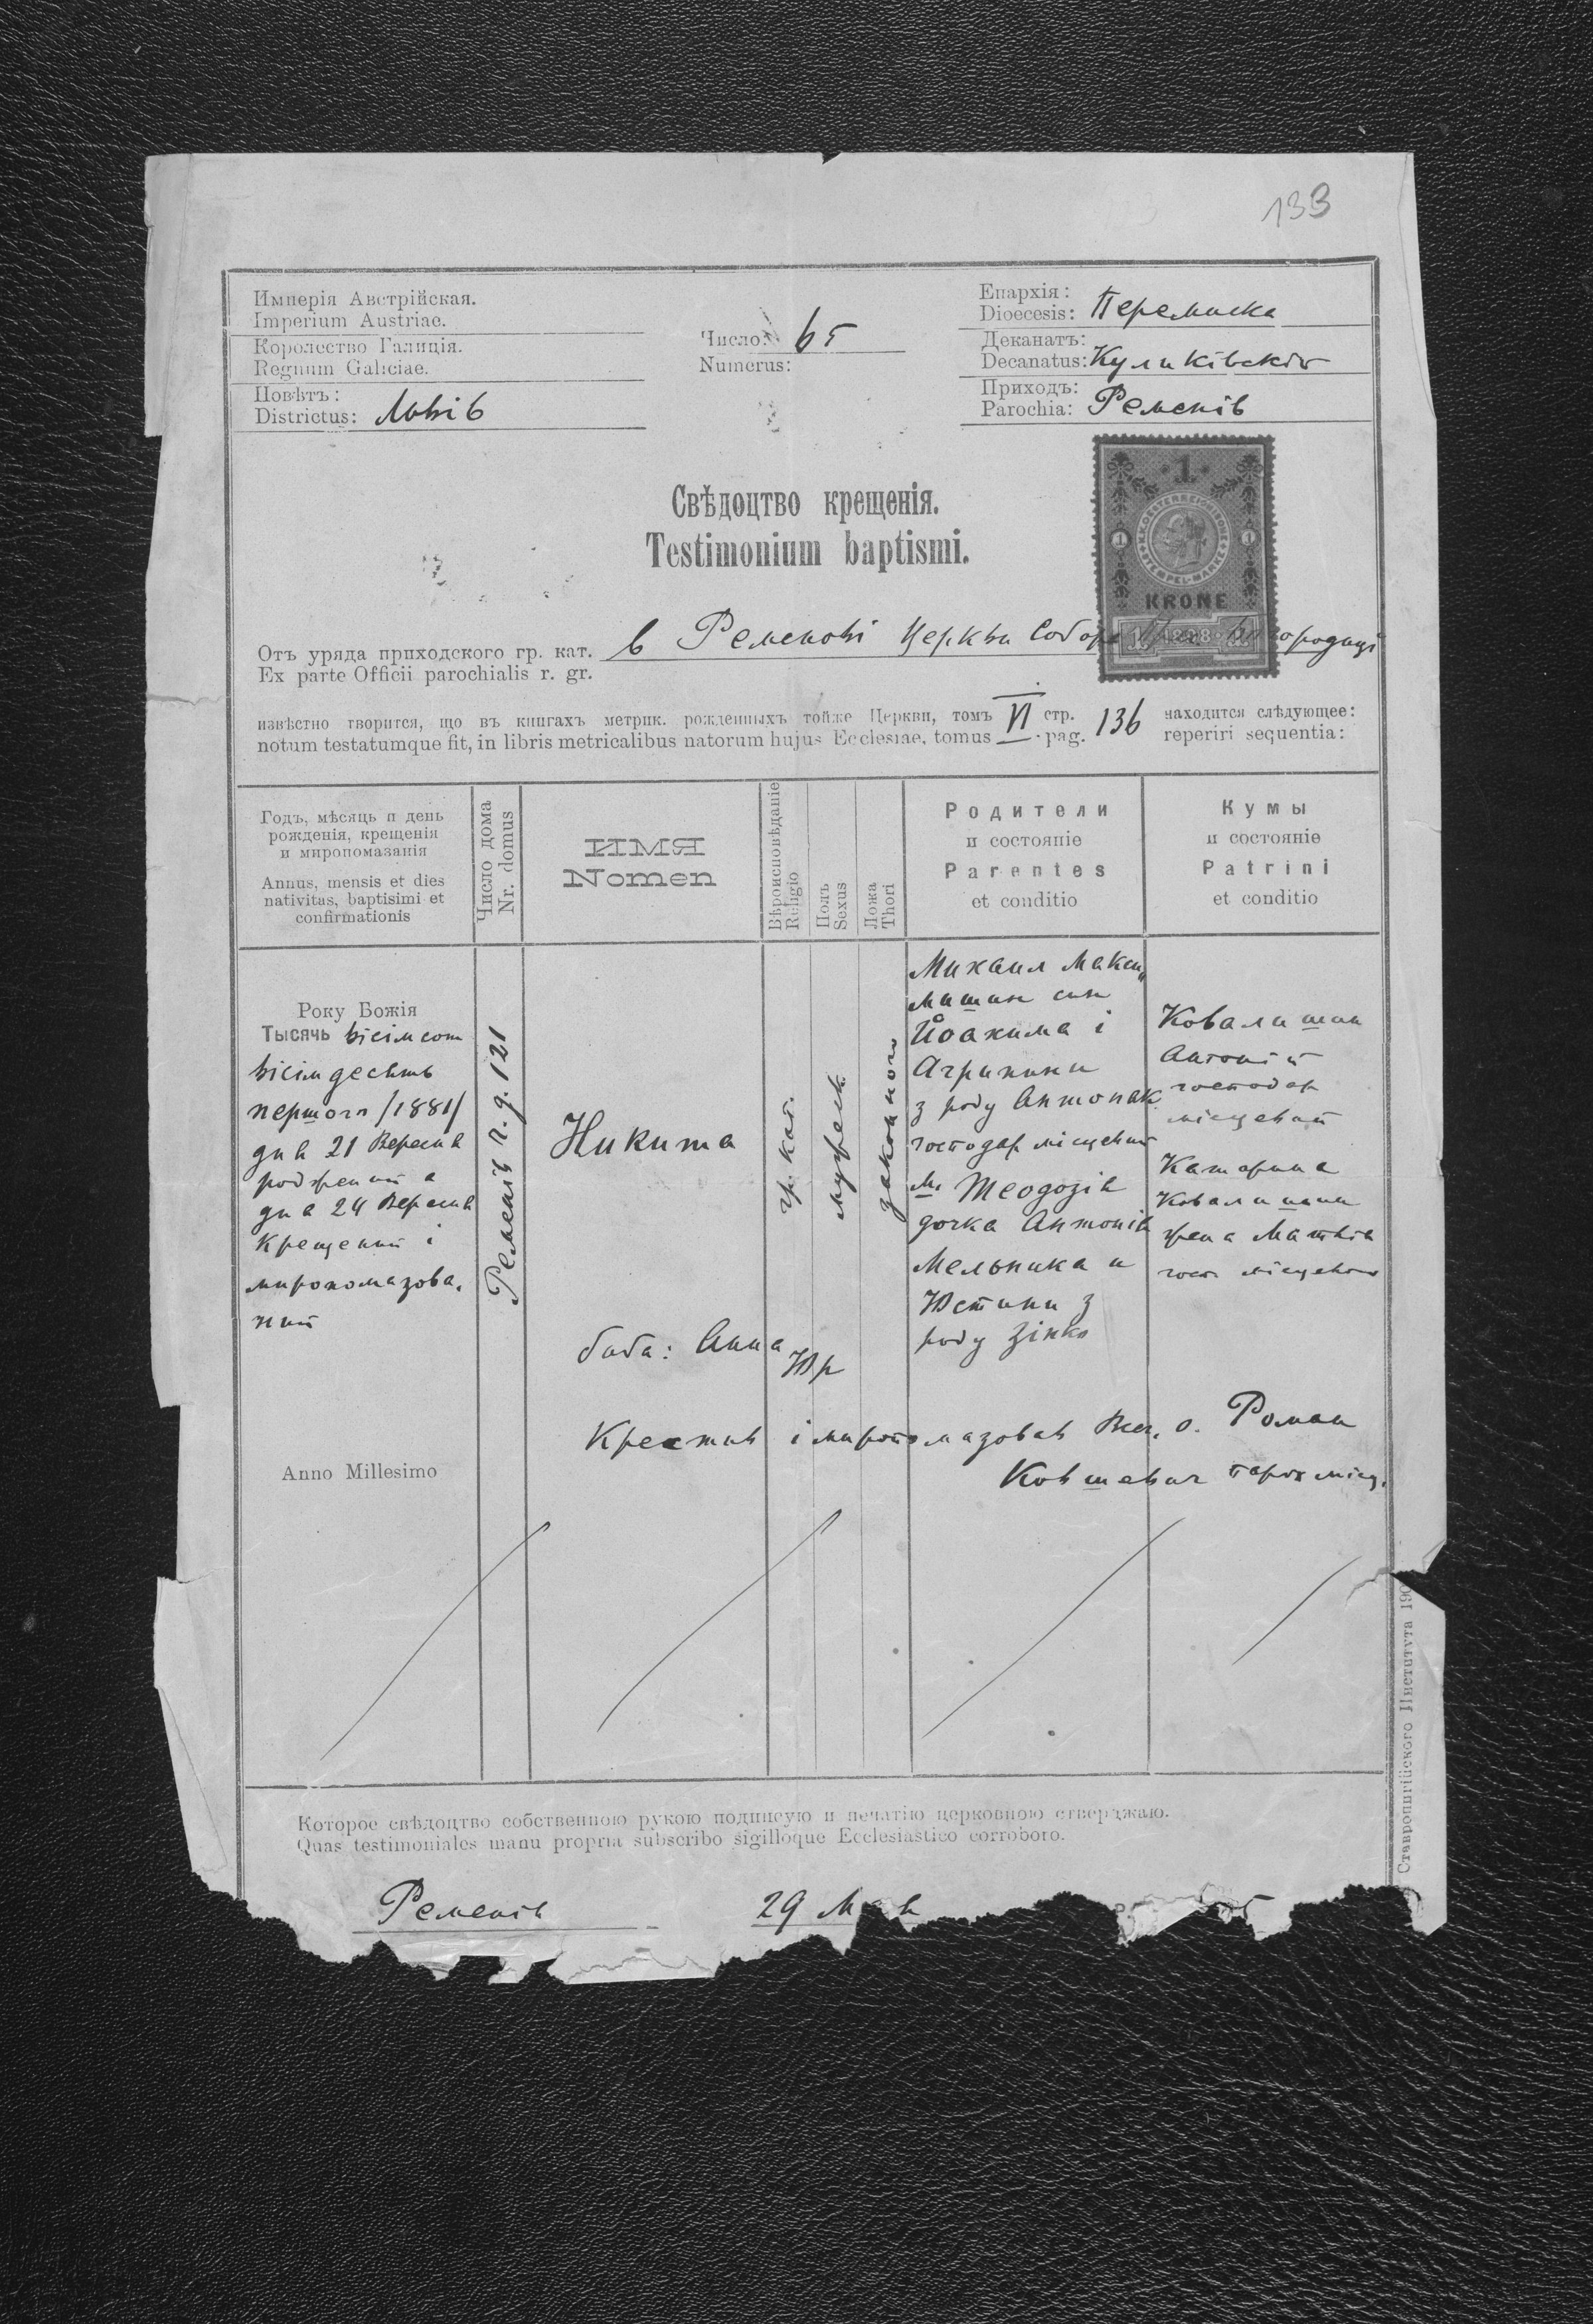 133
Имперія Австрійская.
Imperium Austriae.
Королество Галиція.
Regnum Galiciae.
Повѣтъ:
Districtus: Львів
Число: 65
Numerus:
Епархія:
Dioecesis: Перемиска
Деканатъ:
Decanatus: Куликівскій
Приходъ:
Parochia: Ременів
Свѣдоцтво крещенія.
Testimonium baptismi.
1
K.K. OESTERREICHISCHE STEMPEL-MARKE
1 1
KRONE
1 1898 1
Отъ уряда приходского гр. кат. в Ременові Церкви Собора Богородиці
Ex parte Officii parochialis r. gr.
извѣстно творится, що въ книгахъ метрик. рожденныхъ тойже Церкви, томъ VI стр. 136 находится слѣдующее:
notum testatumque fit, in libris metricalibus natorum hujus Ecclesiae, tomus pag. reperiri sequentia:
Годъ, мѣсяць и день
рожденія, крещенія
и миропомазанія
Annus, mensis et dies
nativitas, baptisimi et
confirmationis
Число дома
Nr. domus
ИМЯ
Nomen
Вѣроисповѣданіе
Religio
Полъ
Sexus
Ложа
Thori
Родители
и состояніе
Parentes
et conditio
Кумы
и состояніе
Patrini
et conditio
Року Божія
Тысячь вісімсот
вісімдесять
першого /1881/
дня 21 Вересня
роджений а
дня 24 Вересня
Крещений і
миропомазова-
ний
Anno Millesimo
Ременів ч. д. 121
Никита
баба: Анна
Юр
гр. кат.
мужеск.
законного
Михаил Макси„
мишин син
Йоакима і
Агрипини
з роду Антоняк
господар місцевий
м. Теодозія
дочка Антонія
Мельника и
Юстини з
роду Зінко
Ковалишин
Антоній
господар
місцевий
Катарина
Ковалишин
жена Матвія
госп. місцевого
Крестив і миропомазовав Всч. о. Роман
Ковшевич парох місц.
Которое свѣдоцтво собственною рукою подписую и печатію церковною стверджаю.
Quas testimoniales manu propria subscribo sigilloque Ecclesiastico corroboro.
Ременів 29
Ставропигійского Института 190